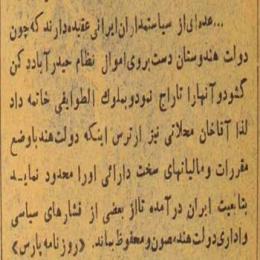 ... عده‌ای از سیاستمداران ایرانی عقیده دارند که چون
دولت هندوستان دست بروی اموال نظام حیدرآباد دکن
گشود و آنها را تاراج نمود و بملوک الطوایفی خاتمه داد
لذا آقاخان محلاتی نیز از ترس اینکه دولت هند با وضع
مقررات و مالیاتهای سخت دارائی او را محدود نماید
بتابعیت ایران در آمده تا از بعضی از فشارهای سیاسی
و اداری دولت هند مصون و محفوظ بماند. «روزنامه پارس»